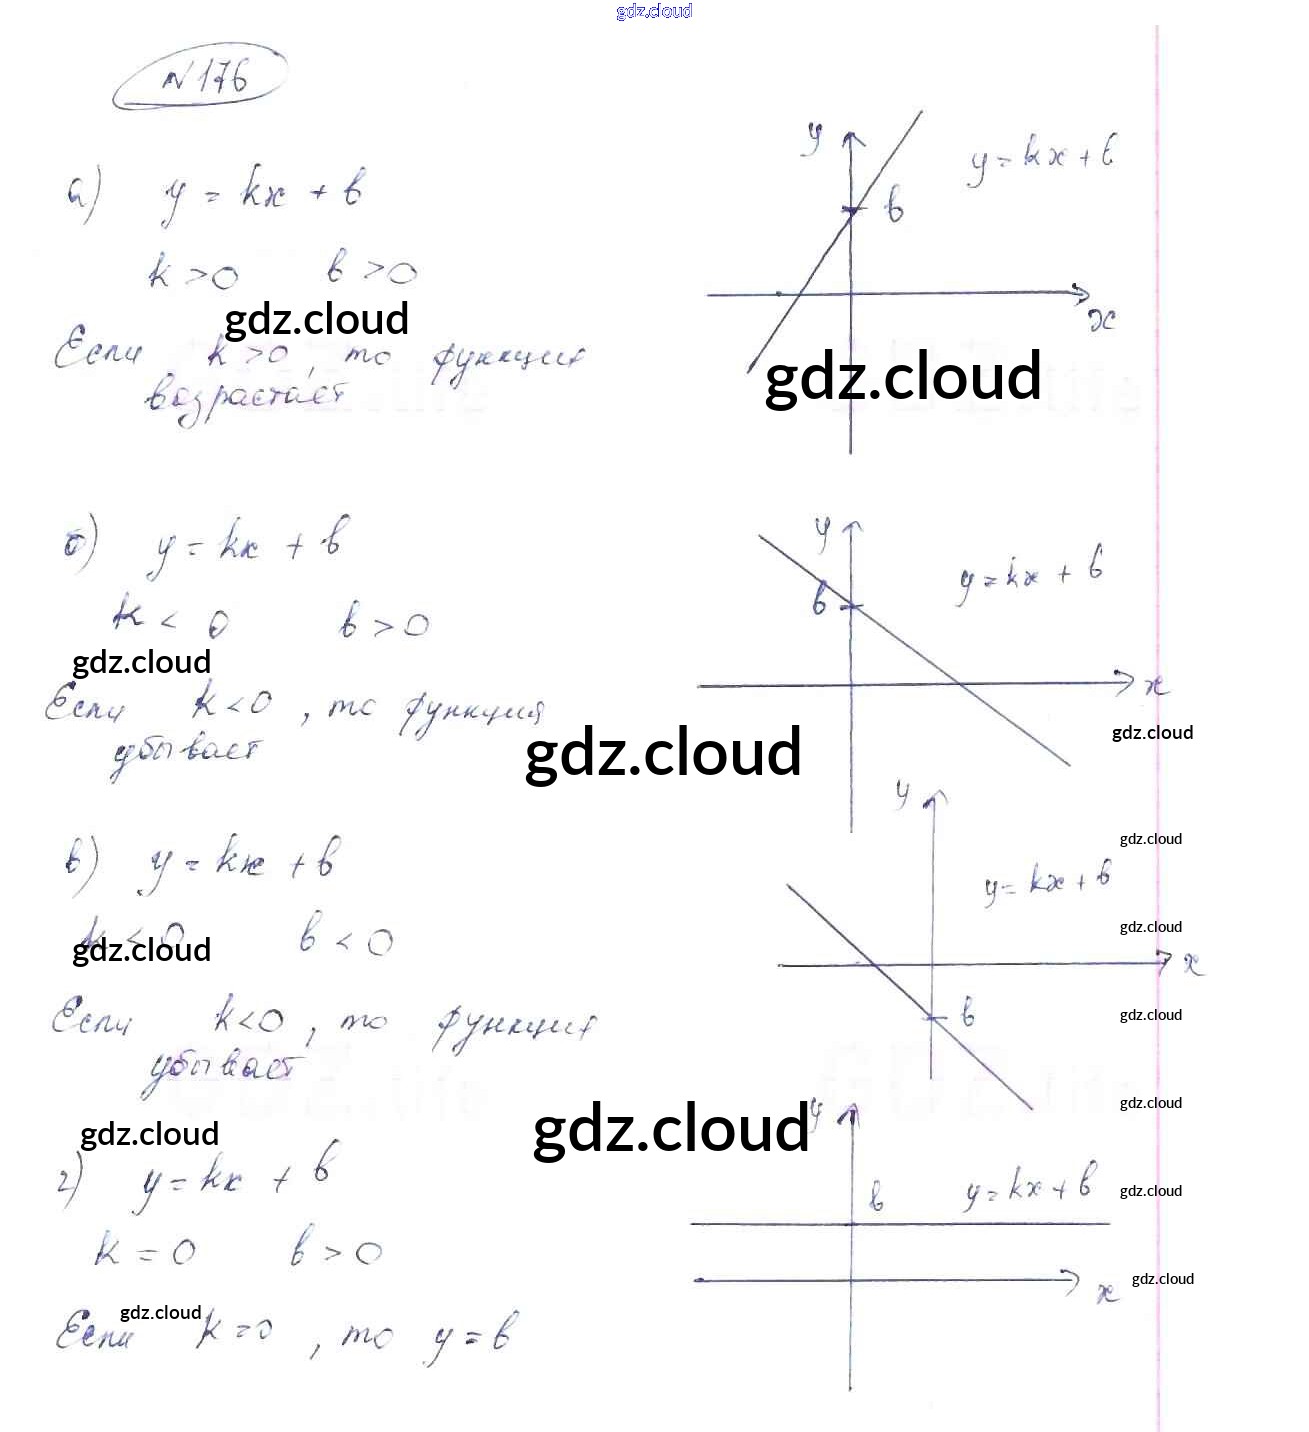 gdz.cloud
N 176
а) y = kx + b
k > 0 b > 0
gdz.cloud
Если k > 0, то функция
возрастает
y
b
y = kx + b
x
gdz.cloud
б) y = kx + b
k < 0 b > 0
gdz.cloud
Если k < 0, то функция
убывает
y
b
y = kx + b
x
gdz.cloud
gdz.cloud
в) y = kx + b
k < 0 b < 0
gdz.cloud
Если k < 0, то функция
убывает
y
gdz.cloud
y = kx + b
gdz.cloud
x
b
gdz.cloud
gdz.cloud
gdz.cloud
gdz.cloud
г) y = kx + b
k = 0 b > 0
gdz.cloud
Если k = 0, то y = b
y
b
y = kx + b
gdz.cloud
x
gdz.cloud